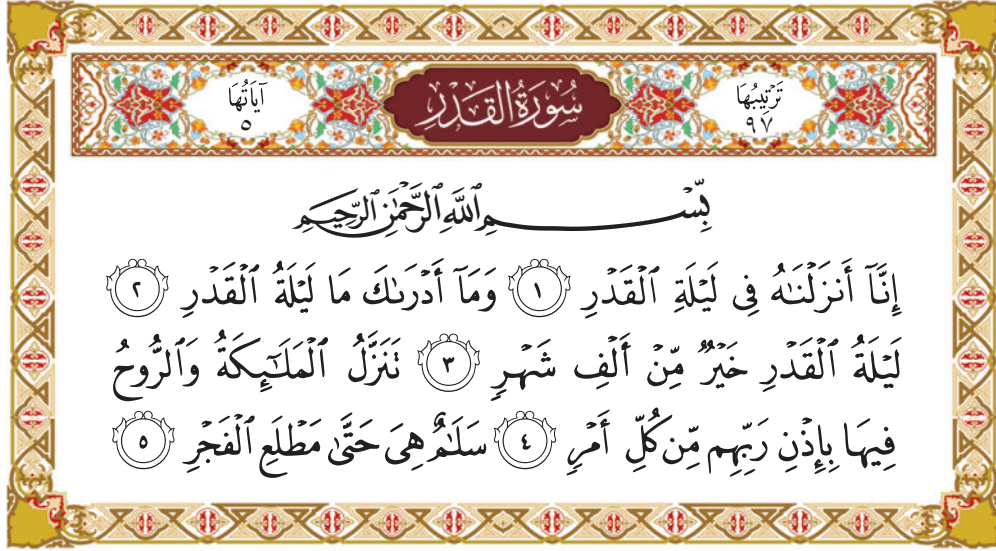 تَرْتِيبُهَا ٩٧
سُورَةُ القَدْرِ
آيَاتُهَا ٥
بِّسْمِ ٱللَّهِ ٱلرَّحْمَٰنِ ٱلرَّحِيمِ
إِنَّآ أَنزَلْنَٰهُ فِى لَيْلَةِ ٱلْقَدْرِ ١ وَمَآ أَدْرَىٰكَ مَا لَيْلَةُ ٱلْقَدْرِ ٢
لَيْلَةُ ٱلْقَدْرِ خَيْرٌ مِّنْ أَلْفِ شَهْرٍ ٣ تَنَزَّلُ ٱلْمَلَٰٓئِكَةُ وَٱلرُّوحُ
فِيهَا بِإِذْنِ رَبِّهِم مِّن كُلِّ أَمْرٍ ٤ سَلَٰمٌ هِىَ حَتَّىٰ مَطْلَعِ ٱلْفَجْرِ ٥